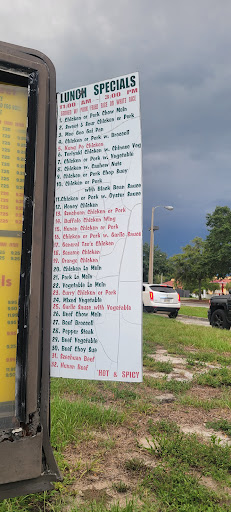 LUNCH SPECIALS
11:00 AM - 3:00 PM
SERVED W/ PORK FRIED RICE OR WHITE RICE
1. Chicken or Pork Chow Mein
2. Sweet & Sour Chicken or Pork
3. Moo Goo Gai Pan
4. Chicken or Pork w. Broccoli
5. Kung Po Chicken
6. Teriyaki Chicken w. Chinese Veg
7. Chicken or Pork w. Vegetable
8. Chicken w. Cashew Nuts
9. Chicken or Pork Chop Suey
10. Chicken or Pork
with Black Bean Sauce
11. Chicken or Pork w. Oyster Sauce
12. Honey Chicken
13. Szechuan Chicken or Pork
14. Buffalo Chicken Wing
15. Hunan Chicken or Pork
16. Chicken or Pork w. Garlic Sauce
17. General Tso's Chicken
18. Sesame Chicken
19. Orange Chicken
20. Chicken Lo Mein
21. Pork Lo Mein
22. Vegetable Lo Mein
23. Curry Chicken or Pork
24. Mixed Vegetable
25. Garlic Sauce with Vegetable
26. Beef Chow Mein
27. Beef Broccoli
28. Pepper Steak
29. Beef Vegetable
30. Beef Chop Suey
31. Szechuan Beef
32. Hunan Beef
HOT & SPICY